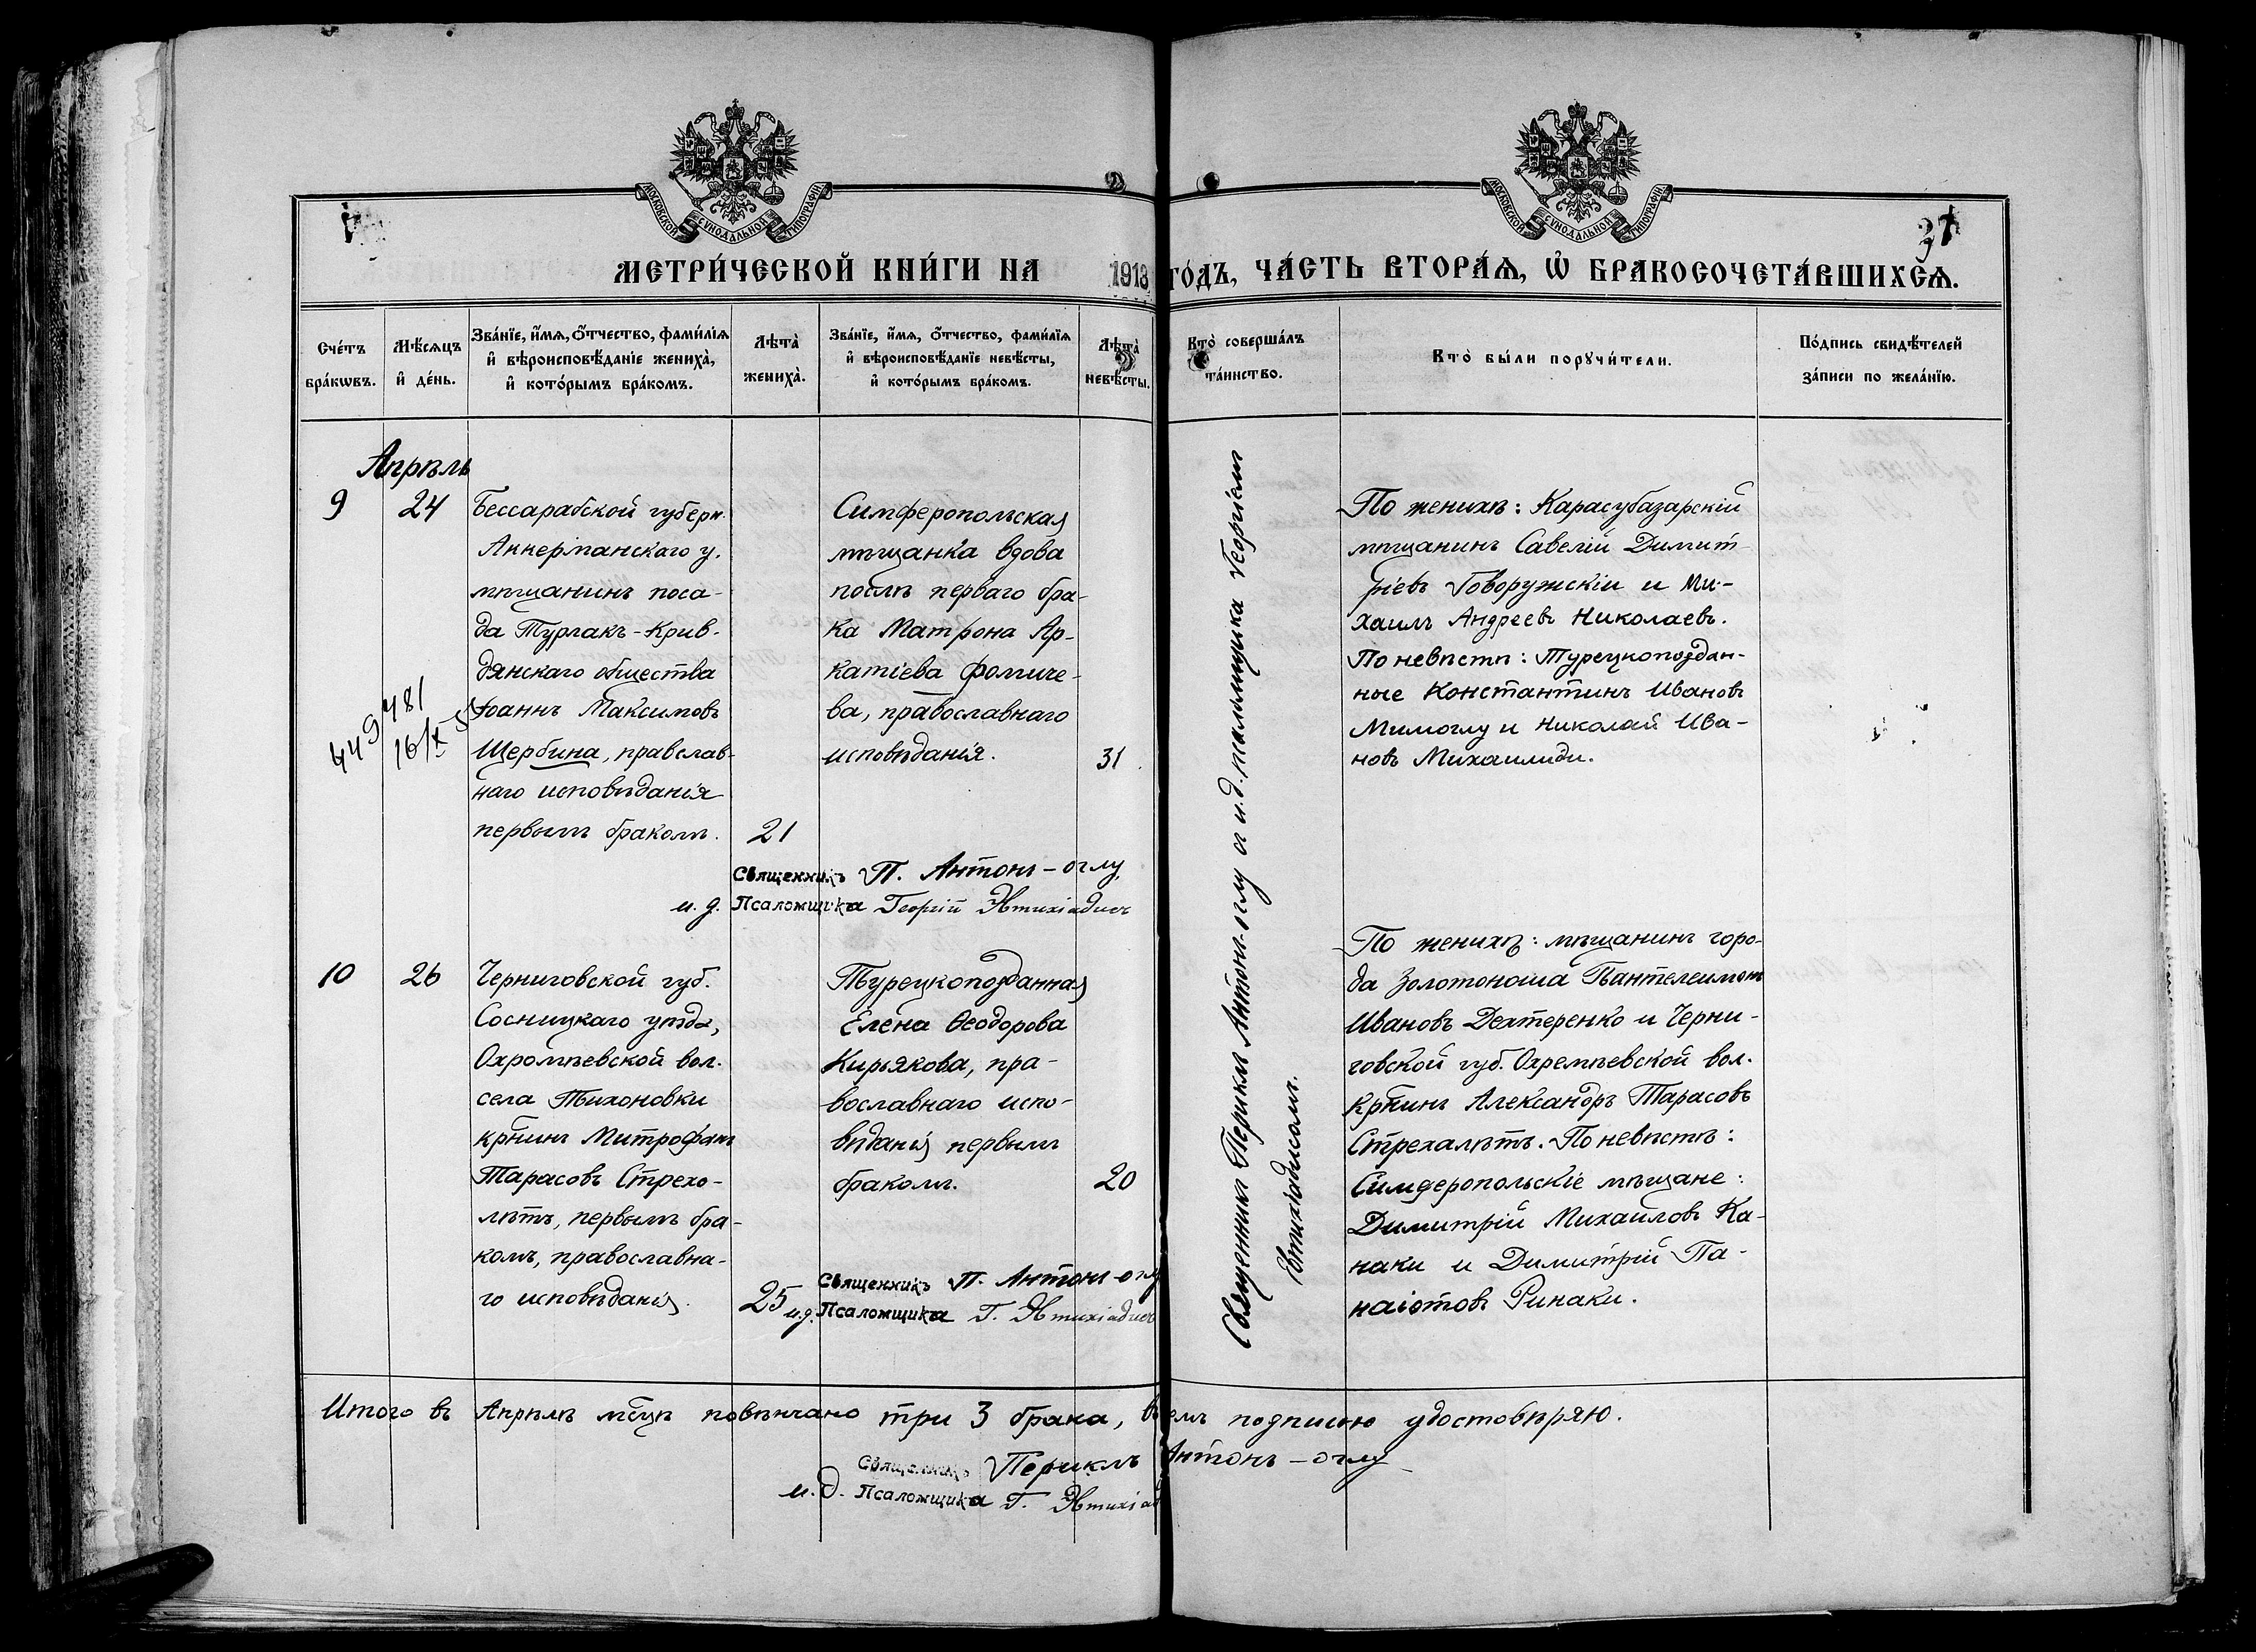 МОСКОВСКОЙ СѴНОДАЛЬНОЙ ТИПОГРАФІИ
МОСКОВСКОЙ СѴНОДАЛЬНОЙ ТИПОГРАФІИ
МЕТРИ́ЧЕСКОЙ КНИ́ГИ НА 1913 ГО́ДЪ, ЧА́СТЬ ВТОРА́Ѧ, Ѡ҆ БРАКОСОЧЕТА́ВШИХСѦ.
Сче́тъ
бра́кѡвъ.
Мѣ́сѧцъ
и҆ де́нь.
Зва́нїе, и҆́мѧ, ѻ҆́тчество, фами́лїѧ
и҆ вѣроисповѣ́данїе жениха̀,
и҆ кото́рымъ бра́комъ.
Лѣта̀
жениха̀.
Зва́нїе, и҆́мѧ, ѻ҆́тчество, фами́лїѧ
и҆ вѣроисповѣ́данїе невѣ́сты,
и҆ кото́рымъ бра́комъ.
Лѣта̀
невѣ́сты.
Кто̀ соверша́лъ
та́инство.
Кто̀ бы́ли порꙋчи́тели.
По́дпись свидѣ́телей
за́писи по жела́нїю.
Апрѣль
9
24
Бессарабской губерн.
Аккерманскаго у.
мѣщанинъ поса-
да Турлакъ-Крив-
дянскаго общества
Іоаннъ Максимовъ
Щербина, православ-
наго исповѣданія
первымъ бракомъ.
21
Симферопольская
мѣщанка вдова
послѣ перваго бра-
ка Матрона Ар-
катіева Фомиче-
ва, православнаго
исповѣданія.
31
Священникъ П. Антонъ-оглу
и. д. Псаломщика Георгій Эвтихіадисъ
Священникъ Периклъ Антонъ-оглу съ и.д. псаломщика Георгіемъ
Евтихіадисомъ.
По женихѣ: Карасубазарскій
мѣщанинъ Савелій Димит-
ріевъ Говоружскій и Ми-
хаилъ Андреевъ Николаевъ.
По невѣстѣ: Турецкоподдан-
ные Константинъ Ивановъ
Мимоглу и Николай Ива-
новъ Михаилиди.
10
26
Черниговской губ.
Сосницкаго уѣзда,
Охромѣевской вол.
села Тихоновки
кр̃нинъ Митрофанъ
Тарасовъ Стрехо-
лѣтъ, первымъ бра-
комъ, православна-
го исповѣданія.
25
Турецкоподданная
Елена Ѳеодорова
Кирьякова, пра-
вославнаго испо-
вѣданія первымъ
бракомъ.
20
Священникъ П. Антонъ-оглу
и.д. Псаломщика Г. Эвтихіадисъ
По женихѣ: мѣщанинъ горо-
да Золотоноша Пантелеимонъ
Ивановъ Дехтеренко и Черни-
говской губ. Охремѣевской вол.
кр̃нинъ Александръ Тарасовъ
Стрехалѣтъ. По невѣстѣ:
Симферопольскіе мѣщане:
Димитрій Михайловъ Ка-
наки и Димитрій Па-
наіотовъ Ринаки.
Итого въ Апрѣлѣ мс̃цѣ повѣнчано три 3 брака, въ чемъ подписью удостовѣряю.
Священникъ Периклъ Антонъ-оглу
и. д. Псаломщика Г. Эвтихіад